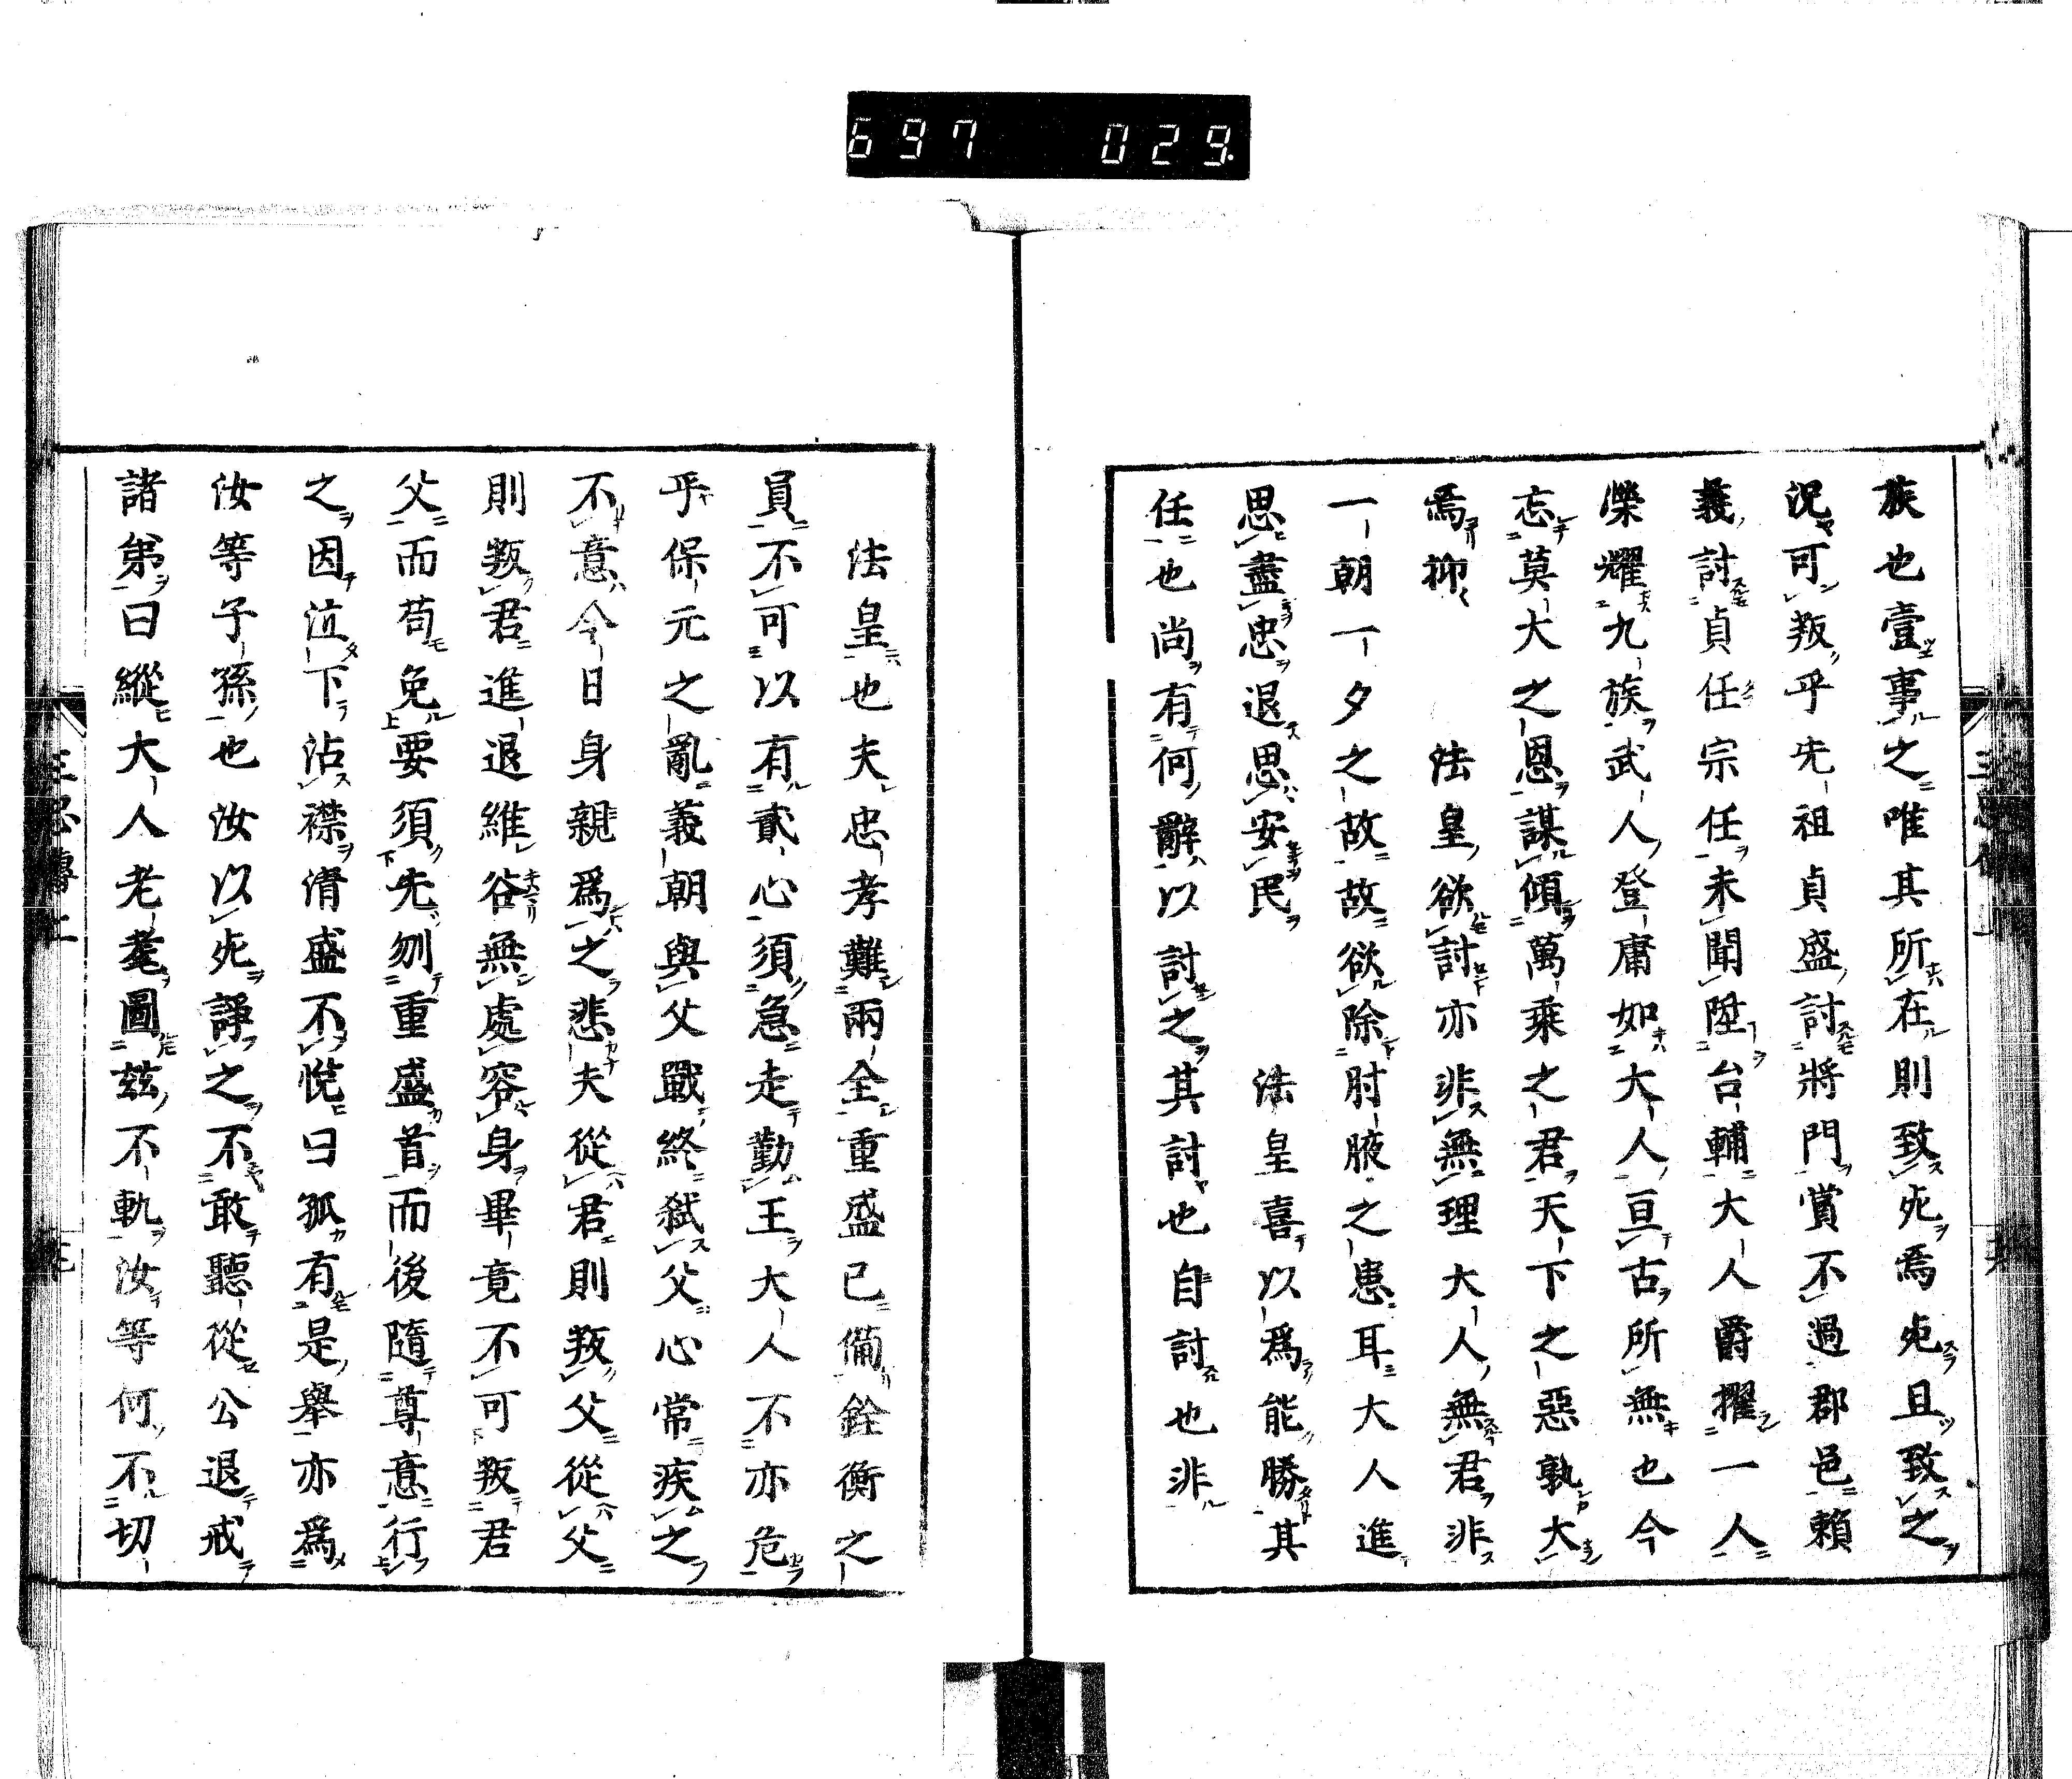 697 029.
族也壹事之唯其所在則致死焉死且致之
況可叛乎先祖貞盛討將門賞不過郡邑賴
義討貞任宗任未聞陞台輔大人爵擢一人
榮耀九族武人登庸如大人亘古所無也今
忘莫大之恩謀傾萬乘之君天下之惡孰大
焉抑　法皇欲討亦非無理大人無君非
一朝一夕之故故欲除肘腋之患耳大人進
思盡忠退思安民　法皇喜以爲能勝其
任也尚有何辭以討之其討也自討也非
法皇也夫忠孝難兩全重盛已備銓衡之
員不可以有貳心須急走勤王大人不亦危
乎保元之亂義朝與父戰終弑父心常疾之
不意今日身親爲之悲夫從君則叛父從父
則叛君進退維谷無處容身畢竟不可叛君
父而苟免要須先刎重盛首而後隨尊意行
之因泣下沾襟淸盛不悅曰孤有是舉亦爲
汝等子孫也汝以死諍之不敢聽從公退戒
諸弟曰縱大人老耄圖茲不軌汝等何不切